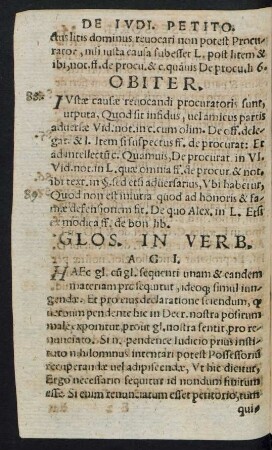 DE IVDI. PETITO.
ctus litis dominus, revocari non potest Procu-
rator, nisi iusta causa subesset L. post litem &
ibi, not. ff. de procu. & c. quāuis De procu. li 6.
OBITER.
88. IVstæ causæ revocandi procuratoris sunt,
utputa, Quod sit infidus, vel amicus partis
adversæ Vid. not. in c. cum olim. De off. deleg-
gat. & l. Item si suspectus ff. de procurat: Et
ad intellectū c. Quamuis, De procurat. in VI.
Vid. not. in L. quæ omnia ff. de procur. & not.
ibi text. in §. sed etsi adversarius, Vbi habetur,
89. Quod non est iniuria quod ad honoris & fa-
mæ defensionem fit. De quo Alex. in L. Etsi
modica ff. de bon lib.
GLOS. IN VERB.
AGI.
HAEc gl. cū gl. sequenti unam & eandem
materiam prosequitur, ideoq; simul iun-
gendæ. Et pro eius declaratione sciendum, q
verbum pendente hic in Decr. nostra positum
male exponitur, prout gl. nostra sentit, pro re-
nunciato. Si n. pendente Iudicio prius insti-
tuto nihilominus intentari potest Possessoriū
recuperandæ vel adipiscendæ, Vt hic dicitur,
Ergo necessario sequitur id nondum finitum
esse. Si enim renunciatum esset petitorio, tum
qui-